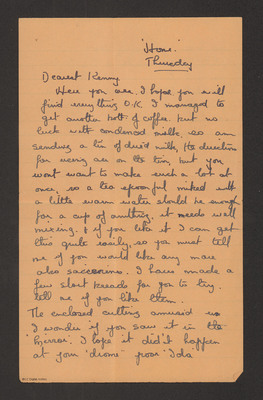 'Home'
Thursday
Dearest Kenny.
Here you are. I hope you will
find everything O.K. I managed to
get another bott of coffee. but no
luck with condensed milk, so am
sending a tin of dried milk, the directions
for using are on the tin, but you
wont want to make such a lot at
once, so a tea spoonful mixed with
a little warm water should be enough
for a cup of anything. it needs well
mixing. & if you like it I can get
this quite easily, so you must tell
me if you would like any more
also saccarines. I have made a
few short breads for you to try.
tell me if you like them.
The enclosed cutting amused us
I wonder if you saw it in the
'Mirror'. I hope it did'nt happen
at your 'drome' poor 'Ida'